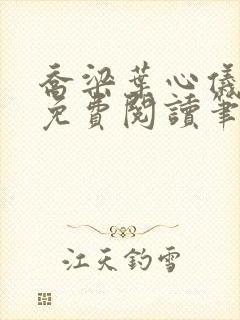 喬梁葉心儀
免費閱讀筆
江天釣雪